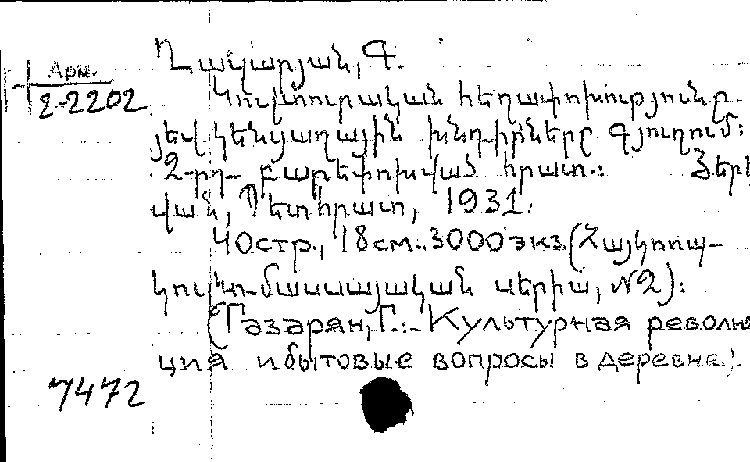 Ղազարյան, Գ.
Арм.
2-2202
Կուլտուրական հեղափոխությունը
յեվ կենցաղային խնդիրները գյուղում:
2-րդ բարեփոխված հրատ.: Յերե
վան, Պետհրատ, 1931.
40стр., 18см. 3000 экз. (Հայկոոպ-
կուլտ-մասսայական սերիա, №2):
(Газарян, Г.: - Культурная револю
ция и бытовые вопросы в деревне.).
7472